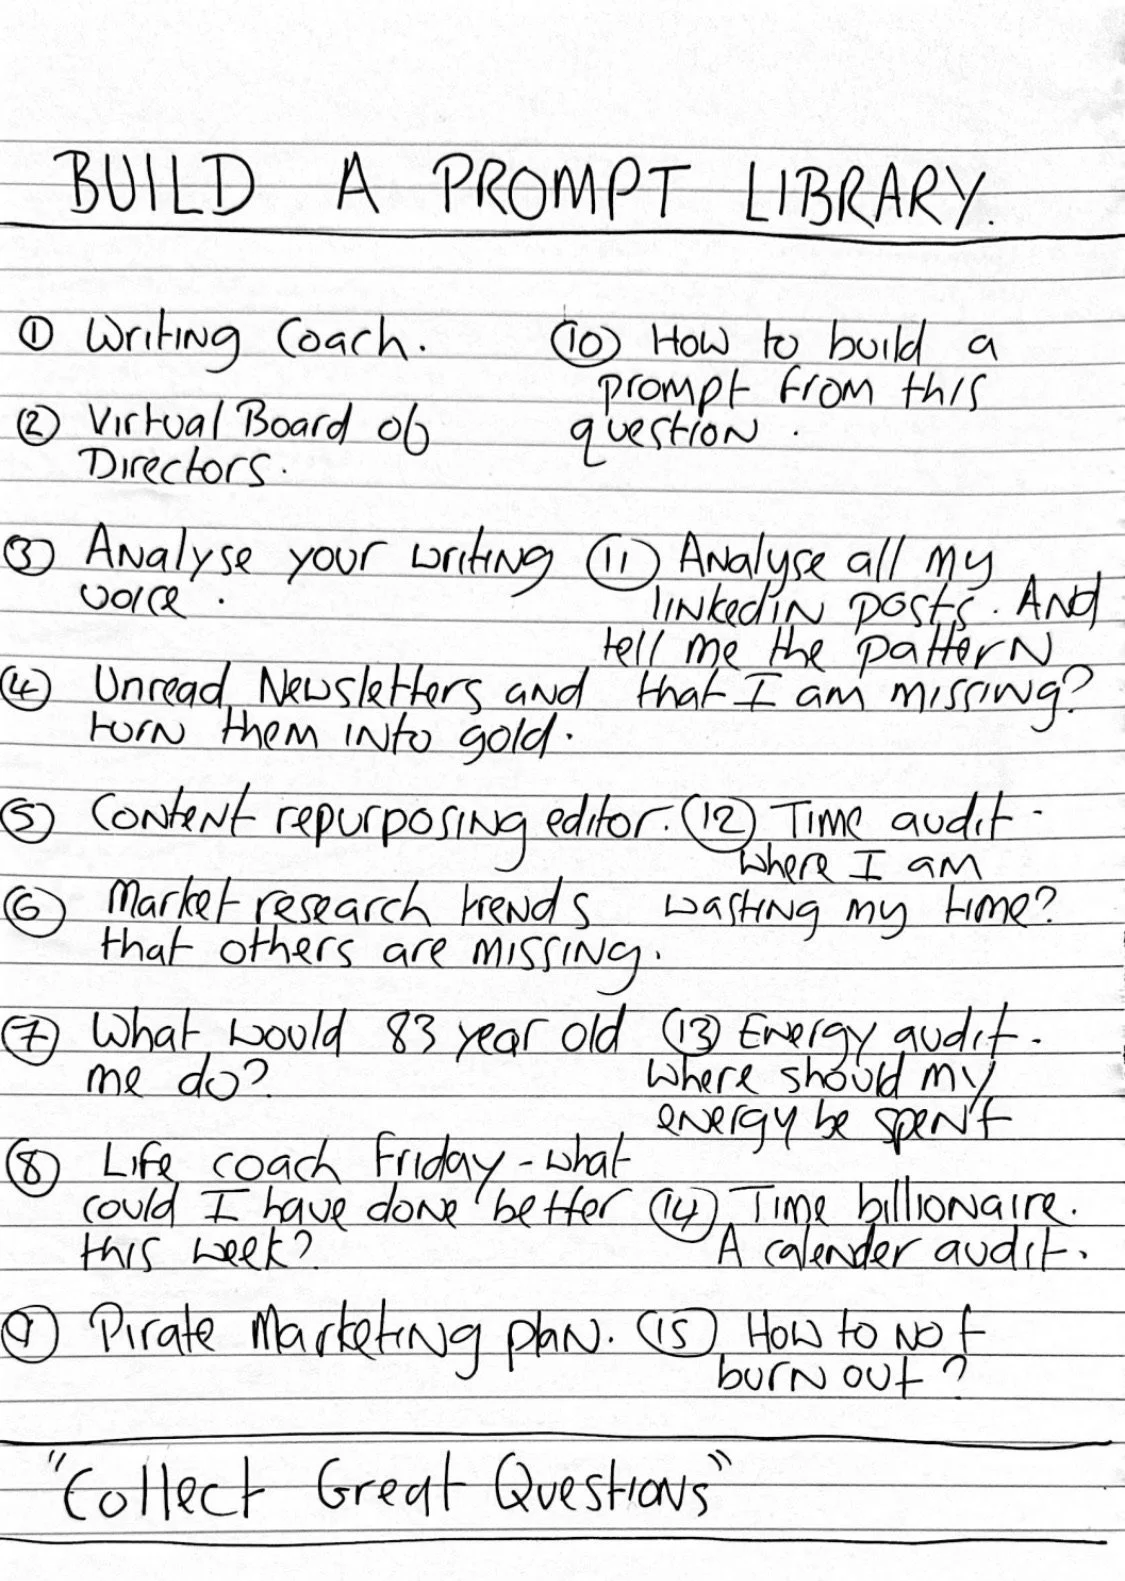 BUILD A PROMPT LIBRARY.
① Writing Coach.
② Virtual Board of
Directors.
③ Analyse your writing
voice.
④ Unread Newsletters and
turn them into gold.
⑤ Content repurposing editor.
⑥ Market research trends
that others are missing.
⑦ What would 83 year old
me do?
⑧ Life coach Friday - what
could I have done better
this week?
⑨ Pirate Marketing plan.
⑩ How to build a
prompt from this
question.
⑪ Analyse all my
linkedin posts. And
tell me the pattern
that I am missing?
⑫ Time audit -
where I am
wasting my time?
⑬ Energy audit -
where should my
energy be spent
⑭ Time billionaire.
A calender audit.
⑮ How to not
burn out?
"Collect Great Questions"